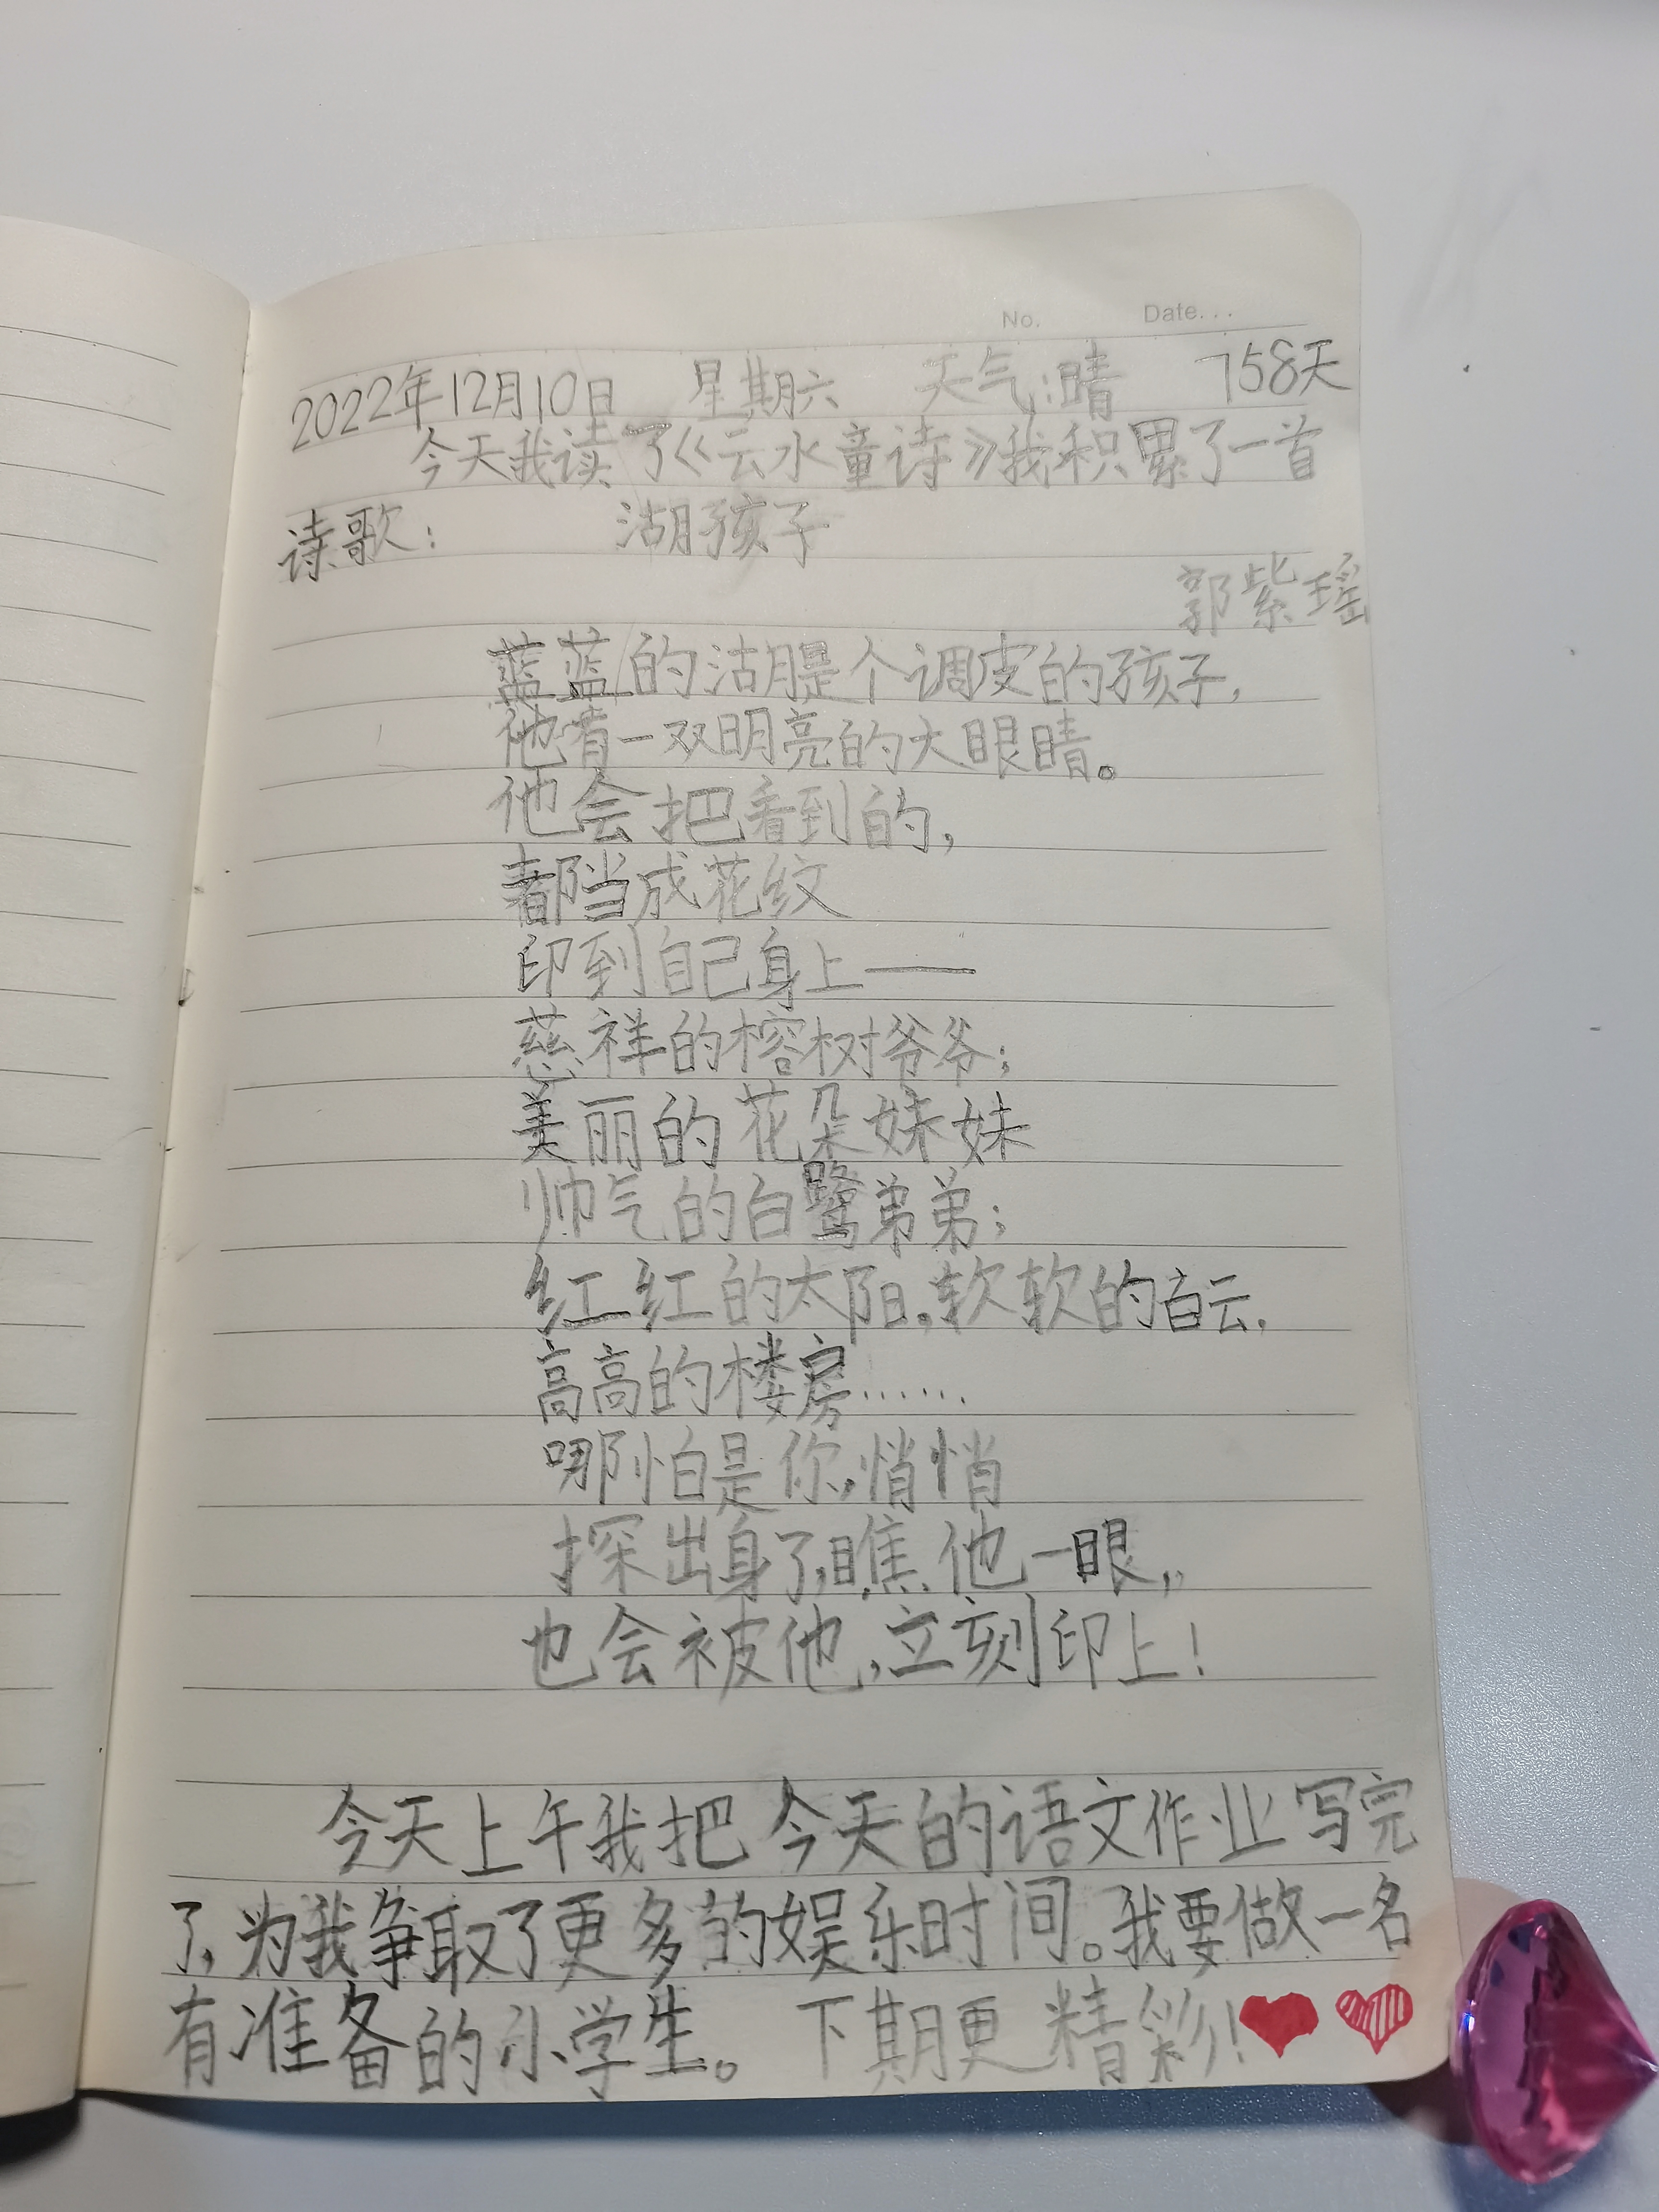 No. Date...
2022年12月10日 星期六 天气:晴 758天
今天我读了《云水童诗》我积累了一首
诗歌: 湖孩子
郭紫瑶
蓝蓝的湖是个调皮的孩子,
他有一双明亮的大眼睛。
他会把看到的,
都当成花纹
印到自己身上——
慈祥的榕树爷爷;
美丽的花朵妹妹
帅气的白鹭弟弟;
红红的太阳。软软的白云.
高高的楼房……
哪怕是你,悄悄
探出身子,瞧他一眼,
也会被他,立刻印上!
今天上午我把今天的语文作业写完
了,为我争取了更多的娱乐时间。我要做一名
有准备的小学生。 下期更精彩!